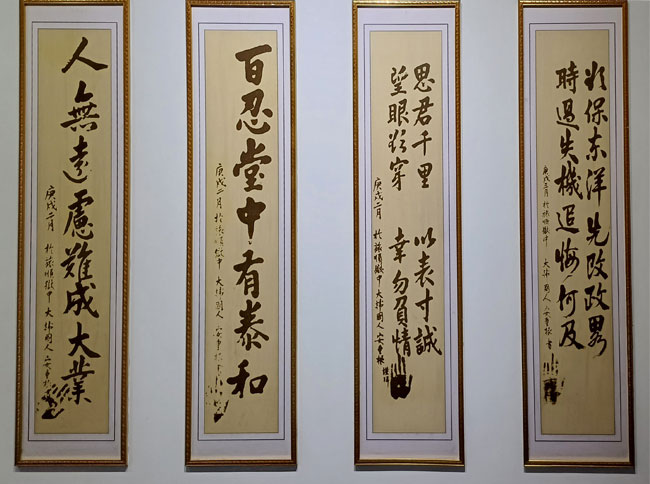 欲保東洋先改政畧
時過失機追悔何及
庚戌三月 於旅順獄中 大韓國人 安重根 書
思君千里
望眼欲穿
以表寸誠
幸勿負情
庚戌三月 於旅順獄中 大韓國人 安重根 謹拜
百忍堂中有泰和
庚戌二月 於旅順獄中 大韓國人 安重根 書
人無遠慮難成大業
庚戌二月 於旅順獄中 大韓國人 安重根 書